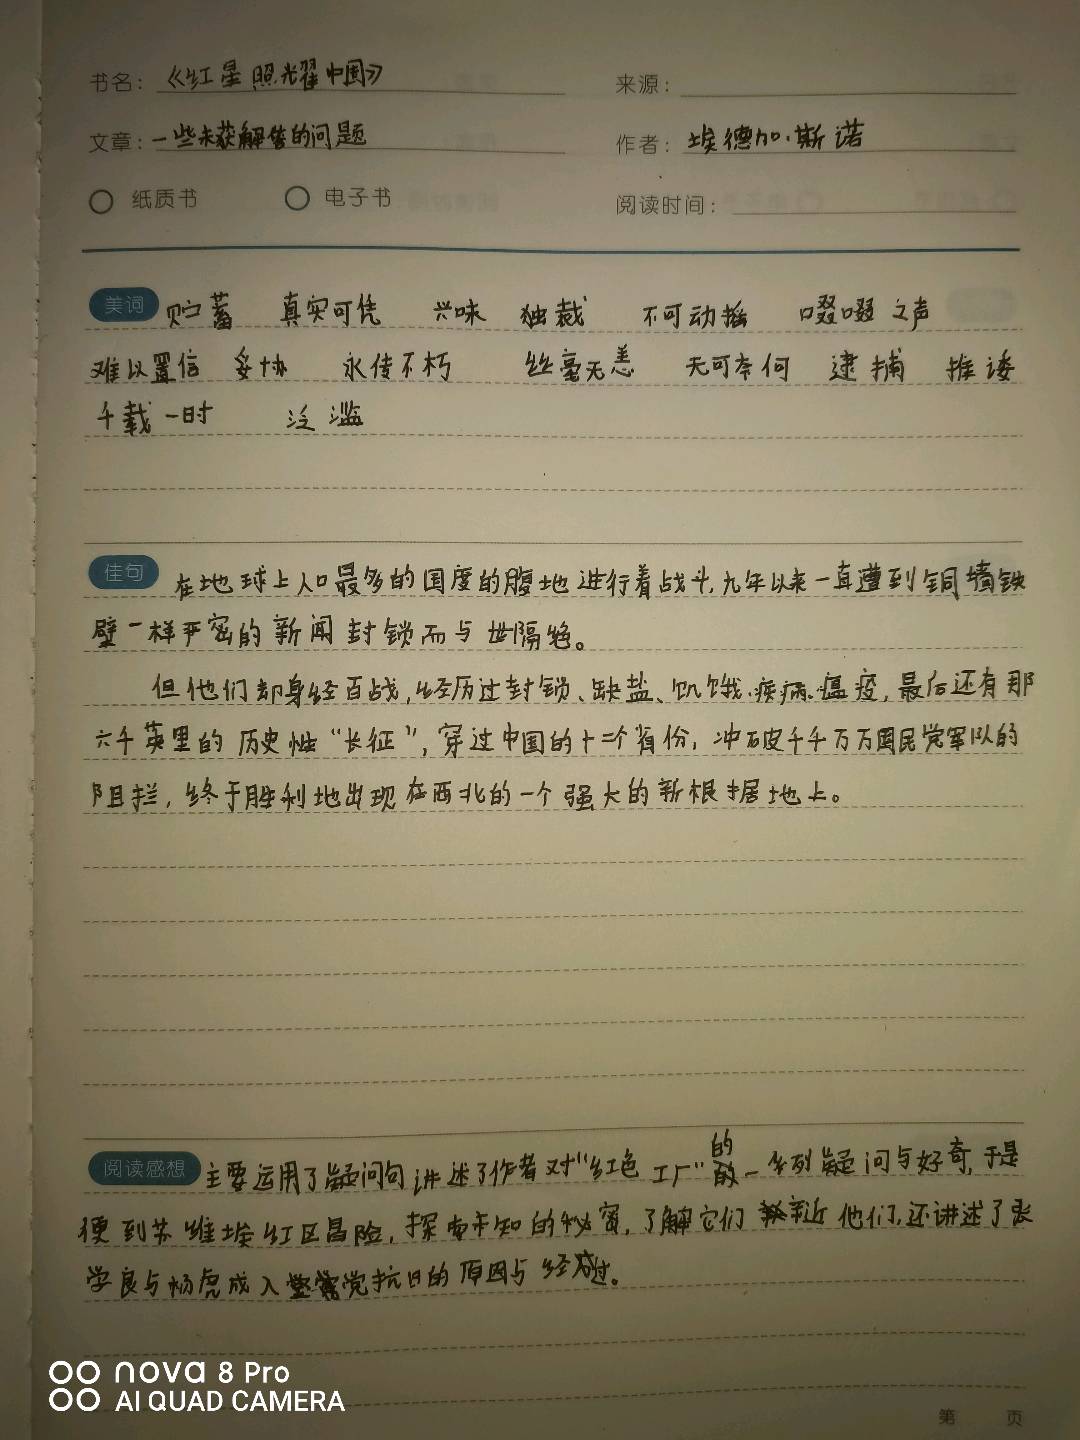 书名：《红星照耀中国》 来源：
文章：一些未获解答的问题 作者：埃德加·斯诺
纸质书 电子书 阅读时间：
美词 贮蓄 真实可凭 兴味 独裁 不可动摇 啜啜之声
难以置信 妥协 永传不朽 丝毫无恙 无可奈何 逮捕 推诿
千载一时 泛滥
佳句 在地球上人口最多的国度的腹地进行着战斗,九年以来一直遭到铜墙铁
壁一样严密的新闻封锁而与世隔绝。
但他们却身经百战,经历过封锁、缺盐、饥饿、疾病、瘟疫,最后还有那
六千英里的历史性“长征”,穿过中国的十二个省份,冲破千千万万国民党军队的
阻拦,终于胜利地出现在西北的一个强大的新根据地上。
阅读感想 主要运用了疑问句讲述了作者对“红色工厂”的一系列疑问与好奇,于是
便到苏维埃红区冒险,探索未知的秘密,了解它们 亲近他们,还讲述了张
学良与杨虎成入党抗日的原因与经过。
nova 8 Pro
AI QUAD CAMERA
第 页